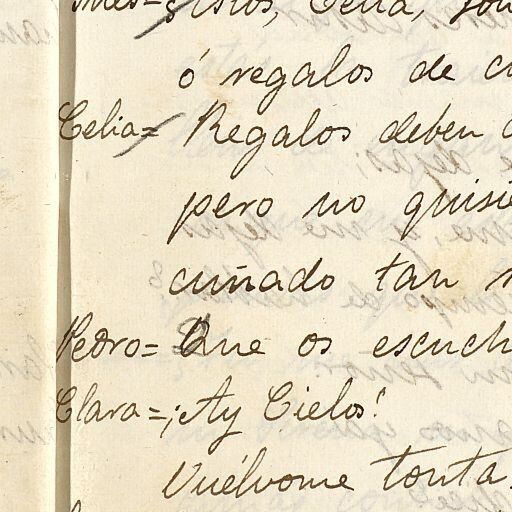 Celia,
ó regalos de
Celia= Regalos deben
pero no
cuñado tan
Pedro= Que os
Clara=¡Ay Cielos!
Vuélvome tonta